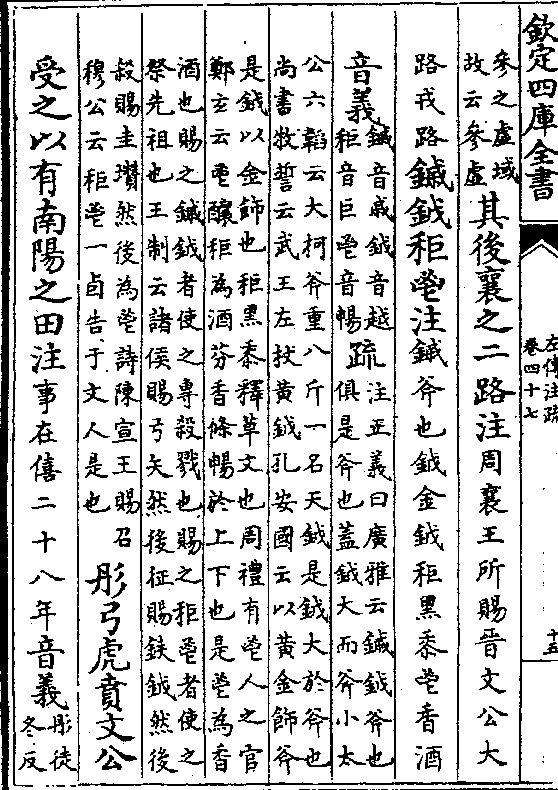 欽定四庫全書
左傳注疏
卷四十七
十五
參之虛域
故云參虛
其後襄之二路注周襄王所賜晉文公大
路戎路鏚鉞秬鬯注鏚斧也鉞金鉞秬黑黍鬯香酒
音義
鏚音戚鉞音越
秬音巨鬯音暢
疏
注正義曰廣雅云鏚鉞斧也
俱是斧也蓋鉞大而斧小太
公六韜云大柯斧重八斤一名天鉞是鉞大於斧也
尚書牧誓云武王左杖黃鉞孔安國云以黃金飾斧
是鉞以金飾也秬黑黍釋草文也周禮有鬯人之官
鄭玄云鬯釀秬為酒芬香條暢於上下也是鬯為香
酒也賜之鏚鉞者使之專殺戮也賜之秬鬯者使之
祭先祖也王制云諸侯賜弓矢然後征賜鈇鉞然後
殺賜圭瓚然後為鬯詩陳宣王賜召
穆公云秬鬯一卣告于文人是也
彤弓虎賁文公
受之以有南陽之田注事在僖二十八年音義
彤徒
冬反